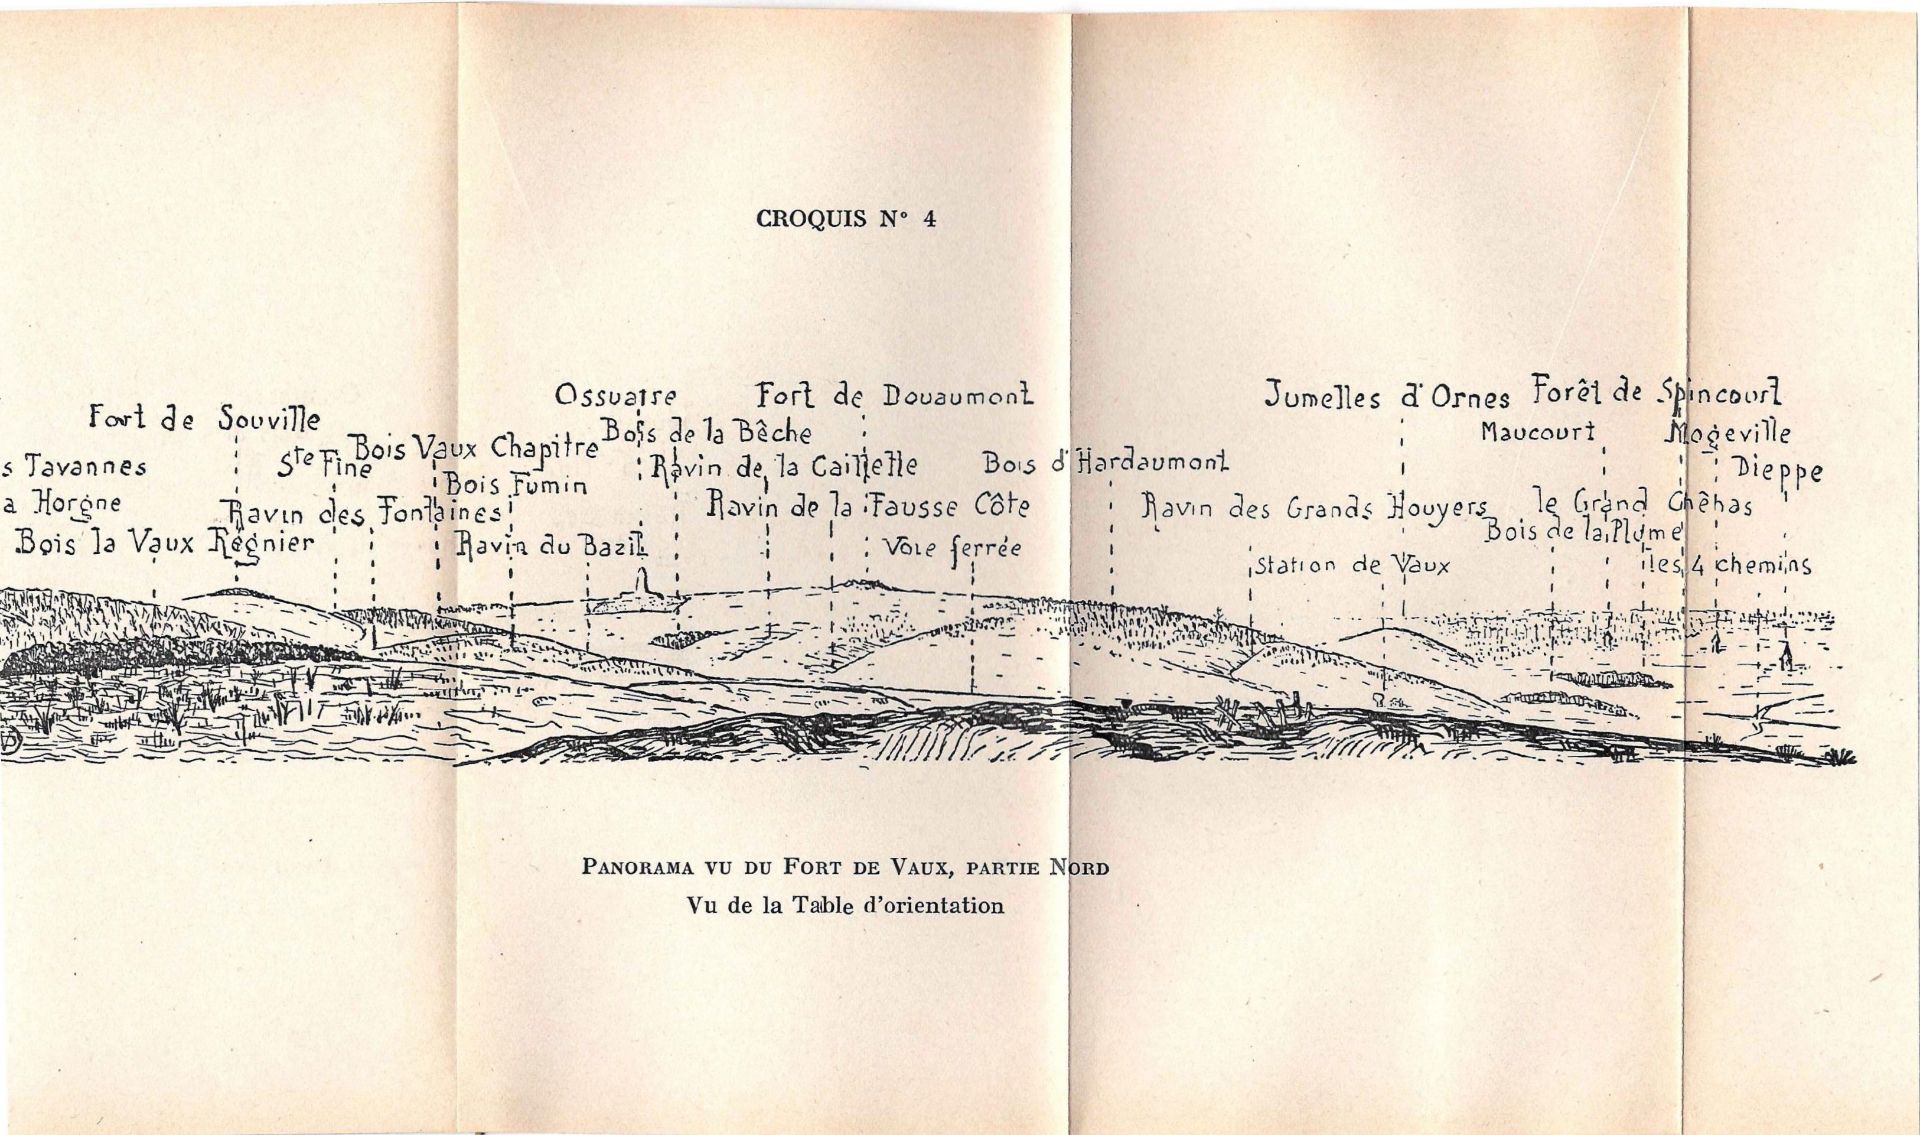 CROQUIS N° 4
Fort de Souville
Ossuaire
Fort de Douaumont
Jumelles d'Ornes
Forêt de Spincourt
Bois Vaux Chapitre
Bois de la Bêche
Maucourt
Mogeville
s Tavannes
Ste Fine
Ravin de la Caillette
Bois d'Hardaumont
Dieppe
a Horgne
Bois Fumin
Ravin des Fontaines
Ravin de la Fausse Côte
Ravin des Grands Houyers
le Grand Chêhas
Bois la Vaux Régnier
Ravin du Bazil
Voie ferrée
Bois de la Plume
Station de Vaux
les 4 chemins
PANORAMA VU DU FORT DE VAUX, PARTIE NORD
Vu de la Table d'orientation